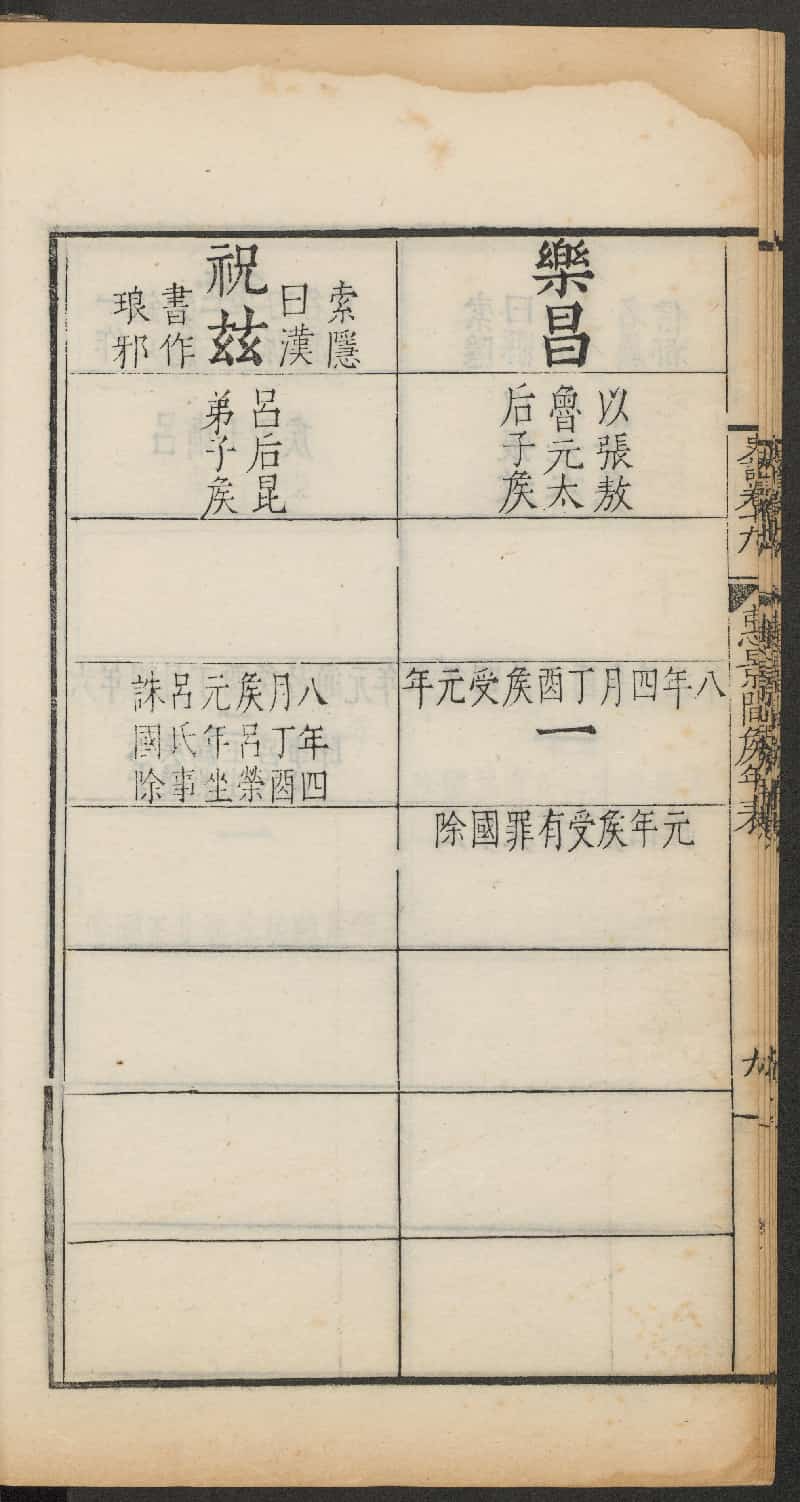 樂昌
以張敖
魯元太
后子矦
八年四月丁酉矦受元年
一
元年矦受有罪國除
索隱
曰漢
祝茲
書作
琅邪
呂后昆
弟子矦
八年四
月丁酉
矦呂榮
元年坐
呂氏事
誅國除
史記卷十九
惠景間矦年表
九